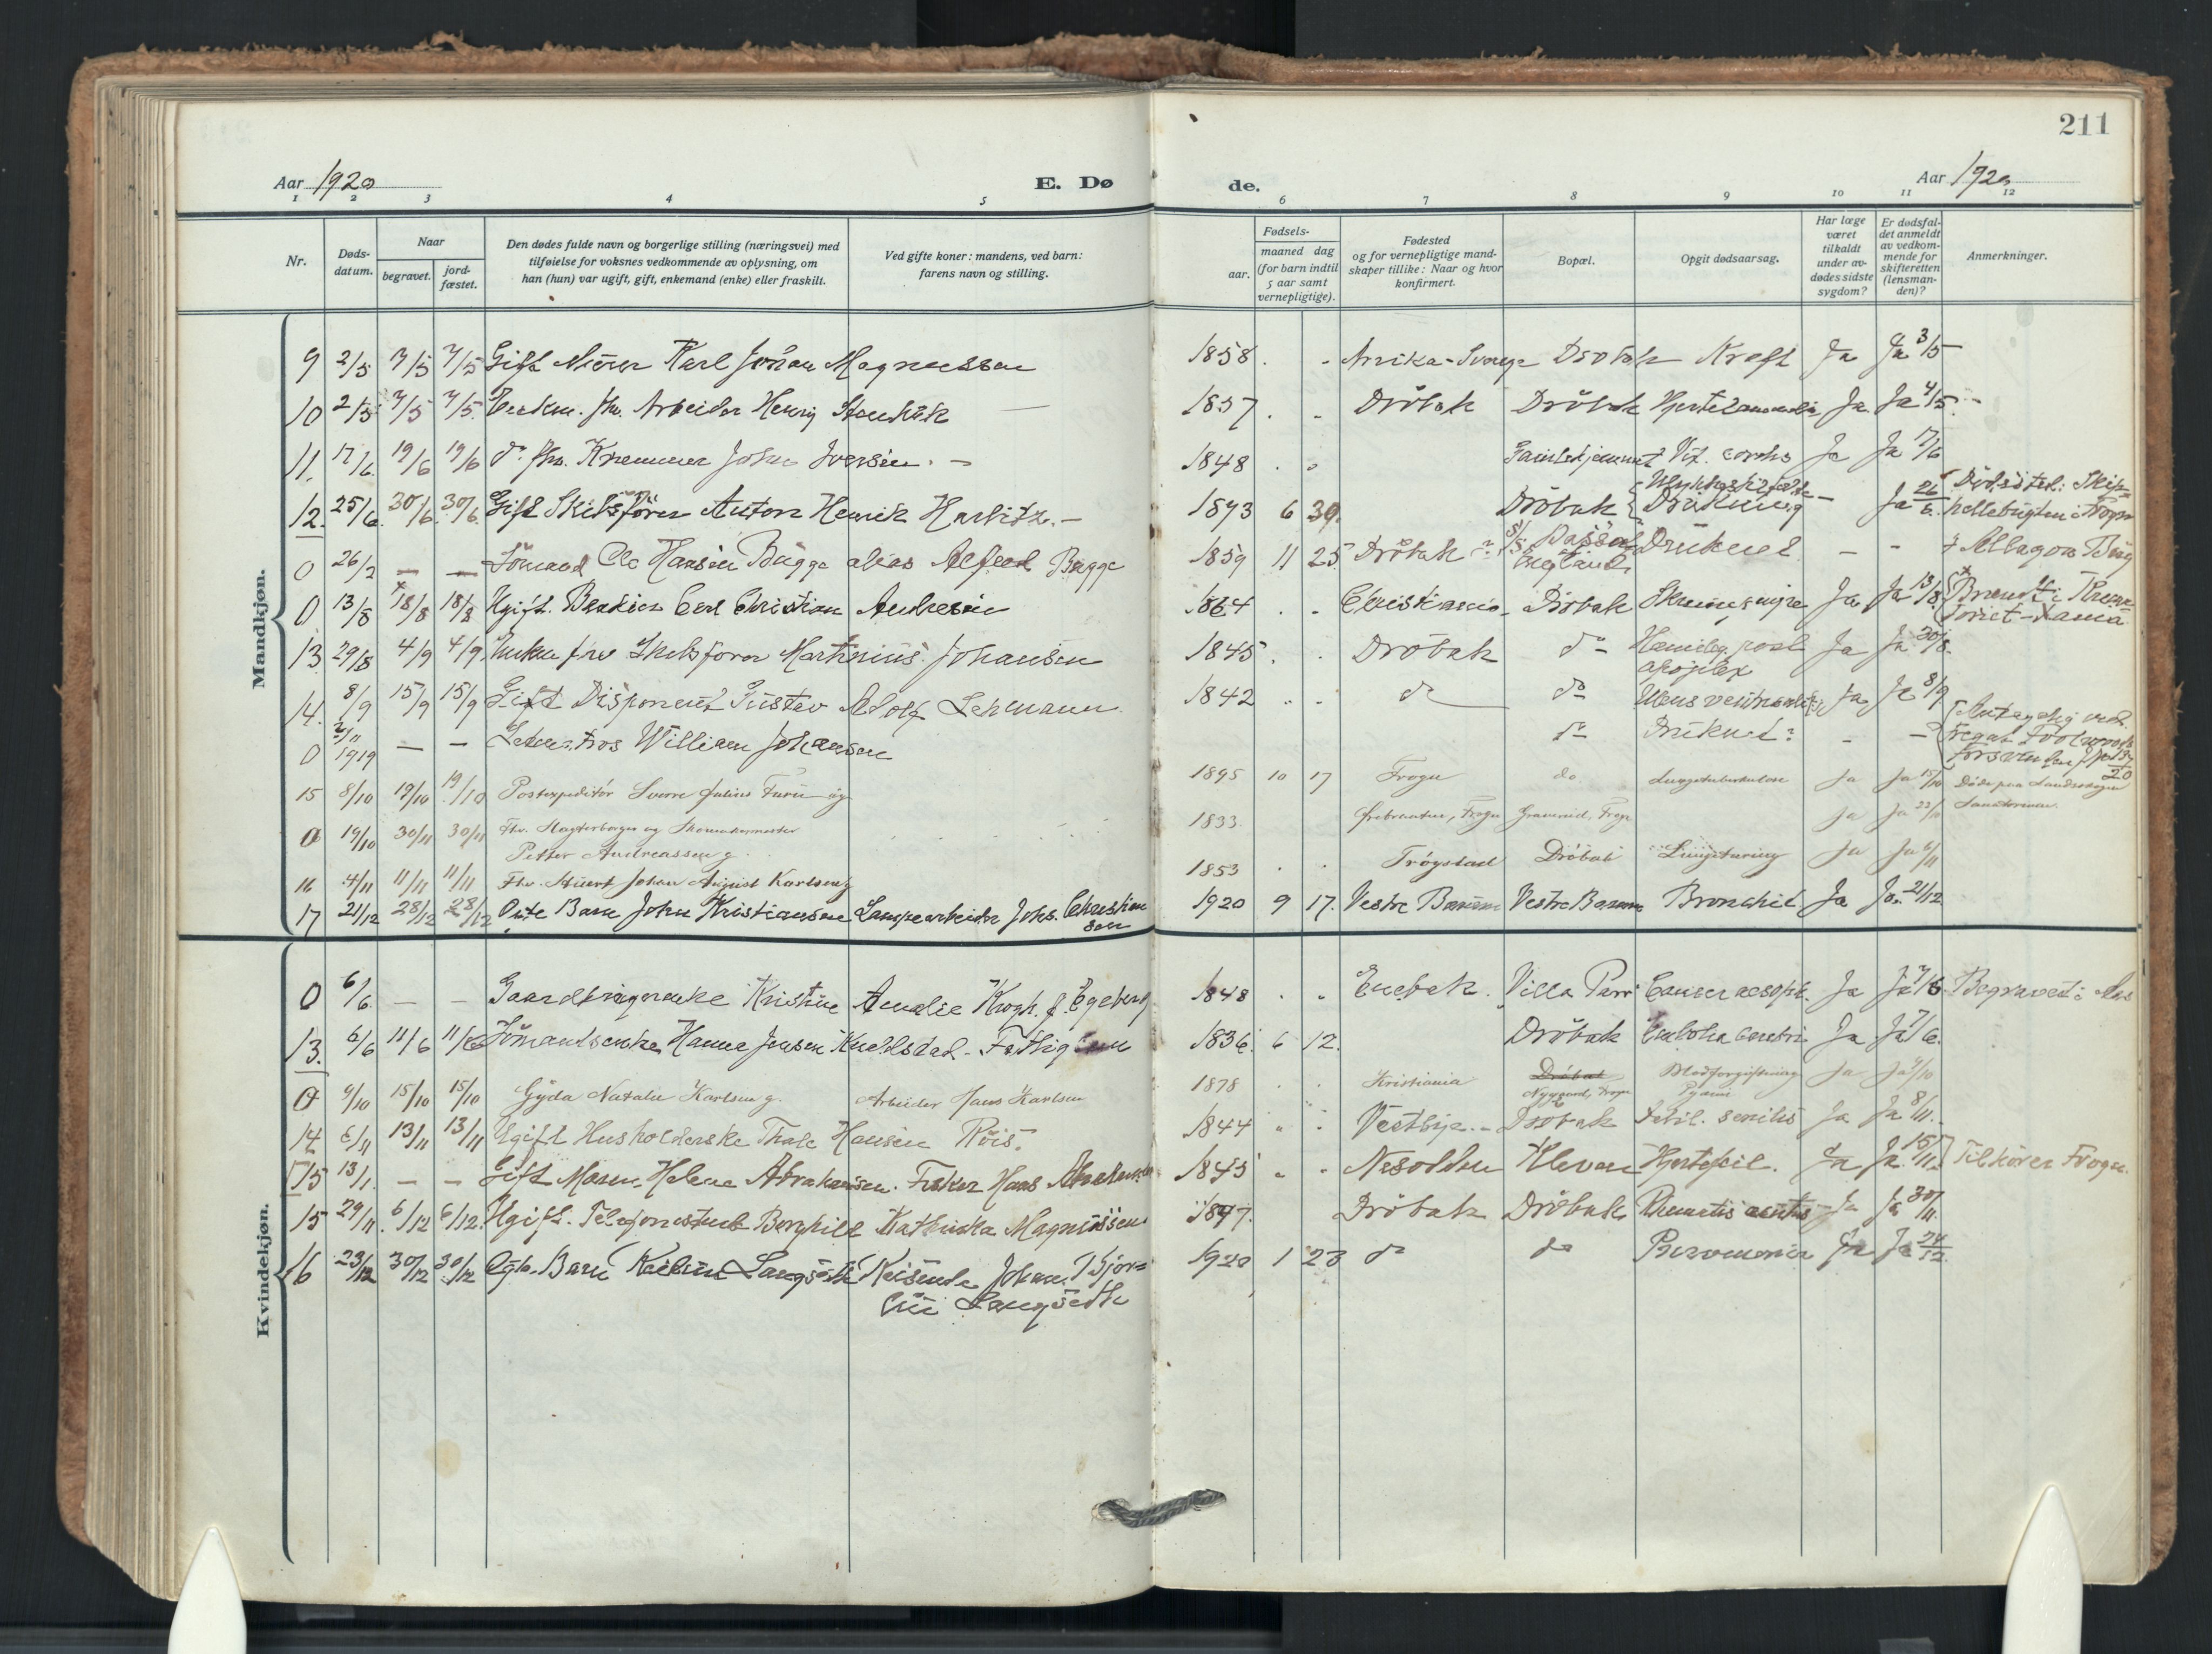 211
Aar 1920
E. Dø
de.
Aar 1920
1 2 3 4 5
6 7 8 9 10 11 12
Nr.
Døds-
datum.
Naar
begravet.
jord-
fæstet.
Den dødes fulde navn og borgerlige stilling (næringsvei) med
tilføielse for voksnes vedkommende av oplysning, om
han (hun) var ugift, gift, enkemand (enke) eller fraskilt.
Ved gifte koner: mandens, ved barn:
farens navn og stilling.
Fødsels-
aar.
maaned dag
(for barn indtil
5 aar samt
vernepligtige).
Fødested
og for vernepligtige mand-
skaper tillike: Naar og hvor
konfirmert.
Bopæl.
Opgit dødsaarsag.
Har læge
været
tilkaldt
under av-
dødes sidste
sygdom?
Er dødsfal-
det anmeldt
av vedkom-
mende for
skifteretten
(lensman-
den)?
Anmerkninger.
Mandkjøn.
9 2/5 7/5 7/5 Gift Murer Karl Johan Magnussen 1858 Arvika-Sverge Drøbak Kræft Ja Ja 3/5
10 2/5 7/5 7/5 Enkem. fhv. Arbeider Henrig 1857 Drøbak Drøbak Ja Ja 4/5
11. 17/6 19/6 19/6 do. fhv. Kræmmer John Iversen. 1848 Gamlehjemmet Vit. cordis Ja Ja 17/6
12. 25/6 30/6 30/6 Gift Skibsfører Anton Henrik Harbitz. 1873 6 30. Drøbak Drukning Ja 26/6 Dødssted: Skip-
hellebugten i Frogn
0 26/2 — — Sømand Ole Hansen Bugge alias Alfred Bugge 1859 11 25 Drøbak England Druknet — -
0 13/8 18/8 18/8 Ugift. Carl Christian Andresen 1864 Christiania Drøbak Ja Ja 13/8 Brændt i Krema-
toriet
13 29/8 4/9 4/9 Enkem. fhv. Skibsfører Martinius Johansen 1845 Drøbak do Hemileg. post
apoplex Ja Ja 30/8.
14. 8/9 15/9 15/9 Gift Disponent Gustav Adolf Lehmann 1842 do do Ulcus ventriculi Ja Ja 8/9
0 1919 — — Letmatros William Johansen do Druknet - - Antagelig ved
15 8/10 19/10 19/10 Postexpeditør Sverre Julius ug 1895 10 17 Frogn do. Lungetuberkulose Ja Ja 15/10 Døde paa Landeskogen
Sanatorium.
0 19/10 30/11 30/11 Fhv. Magterborger og Skomakermester
Petter Andreassen g. 1833 Frogn Frogn Ja Ja
16 4/11 11/11 11/11 Fhv. Stuert Johan August Karlsen g 1853 Trøgstad Drøbak Ja Ja 6/11
17 21/12 28/12 28/12 Barn John Kristiansen Johs. Christian
sen 1920 9 17. Vestre Vestre Bronchit Ja Ja 21/12
Kvindekjøn.
0 6/6 — — Gaardbrugerenke Kristine Amalie Krogh f. Egeberg 1848 Enebak. Villa Parr Cancer aesoph. Ja Ja 7/6 Begravet i Aas
13. 6/6 11/6 11/6 Sømandsenke Hanna Jensen 1836 6 12. Drøbak Embolia cerebri Ja Ja 7/6.
0 9/10 15/10 15/10 Gyda Natalie Karlsen g. Arbeider Hans Karlsen 1878 Kristiania Drøbak
Nygaard, Frogn Blodforgiftning
Pyæmi Ja Ja 9/10
14 6/11 13/11 13/11 Ugift Husholderske Thale Hansen Röis. 1844 Vestbye. Drøbak Debil. senilis Ja Ja 8/11.
15 13/1. — — Gift Maren Helene Abrahamsen. Fisker Hans Abrahamsen 1845 Nesodden Kleven Hjertefeil. Ja Ja 15/11 Tilhører Frogn.
15 29/11. 6/12 6/12. Ugift. Telefonistinde Borghild Kathinka Magnussen 1897. Drøbak Drøbak Ja Ja 30/11.
16 23/12 30/12 30/12 Barn Langseth Reisende Johan Bjor-
Langseth 1920 1 23 do do Pneumonia Ja Ja 24/12.